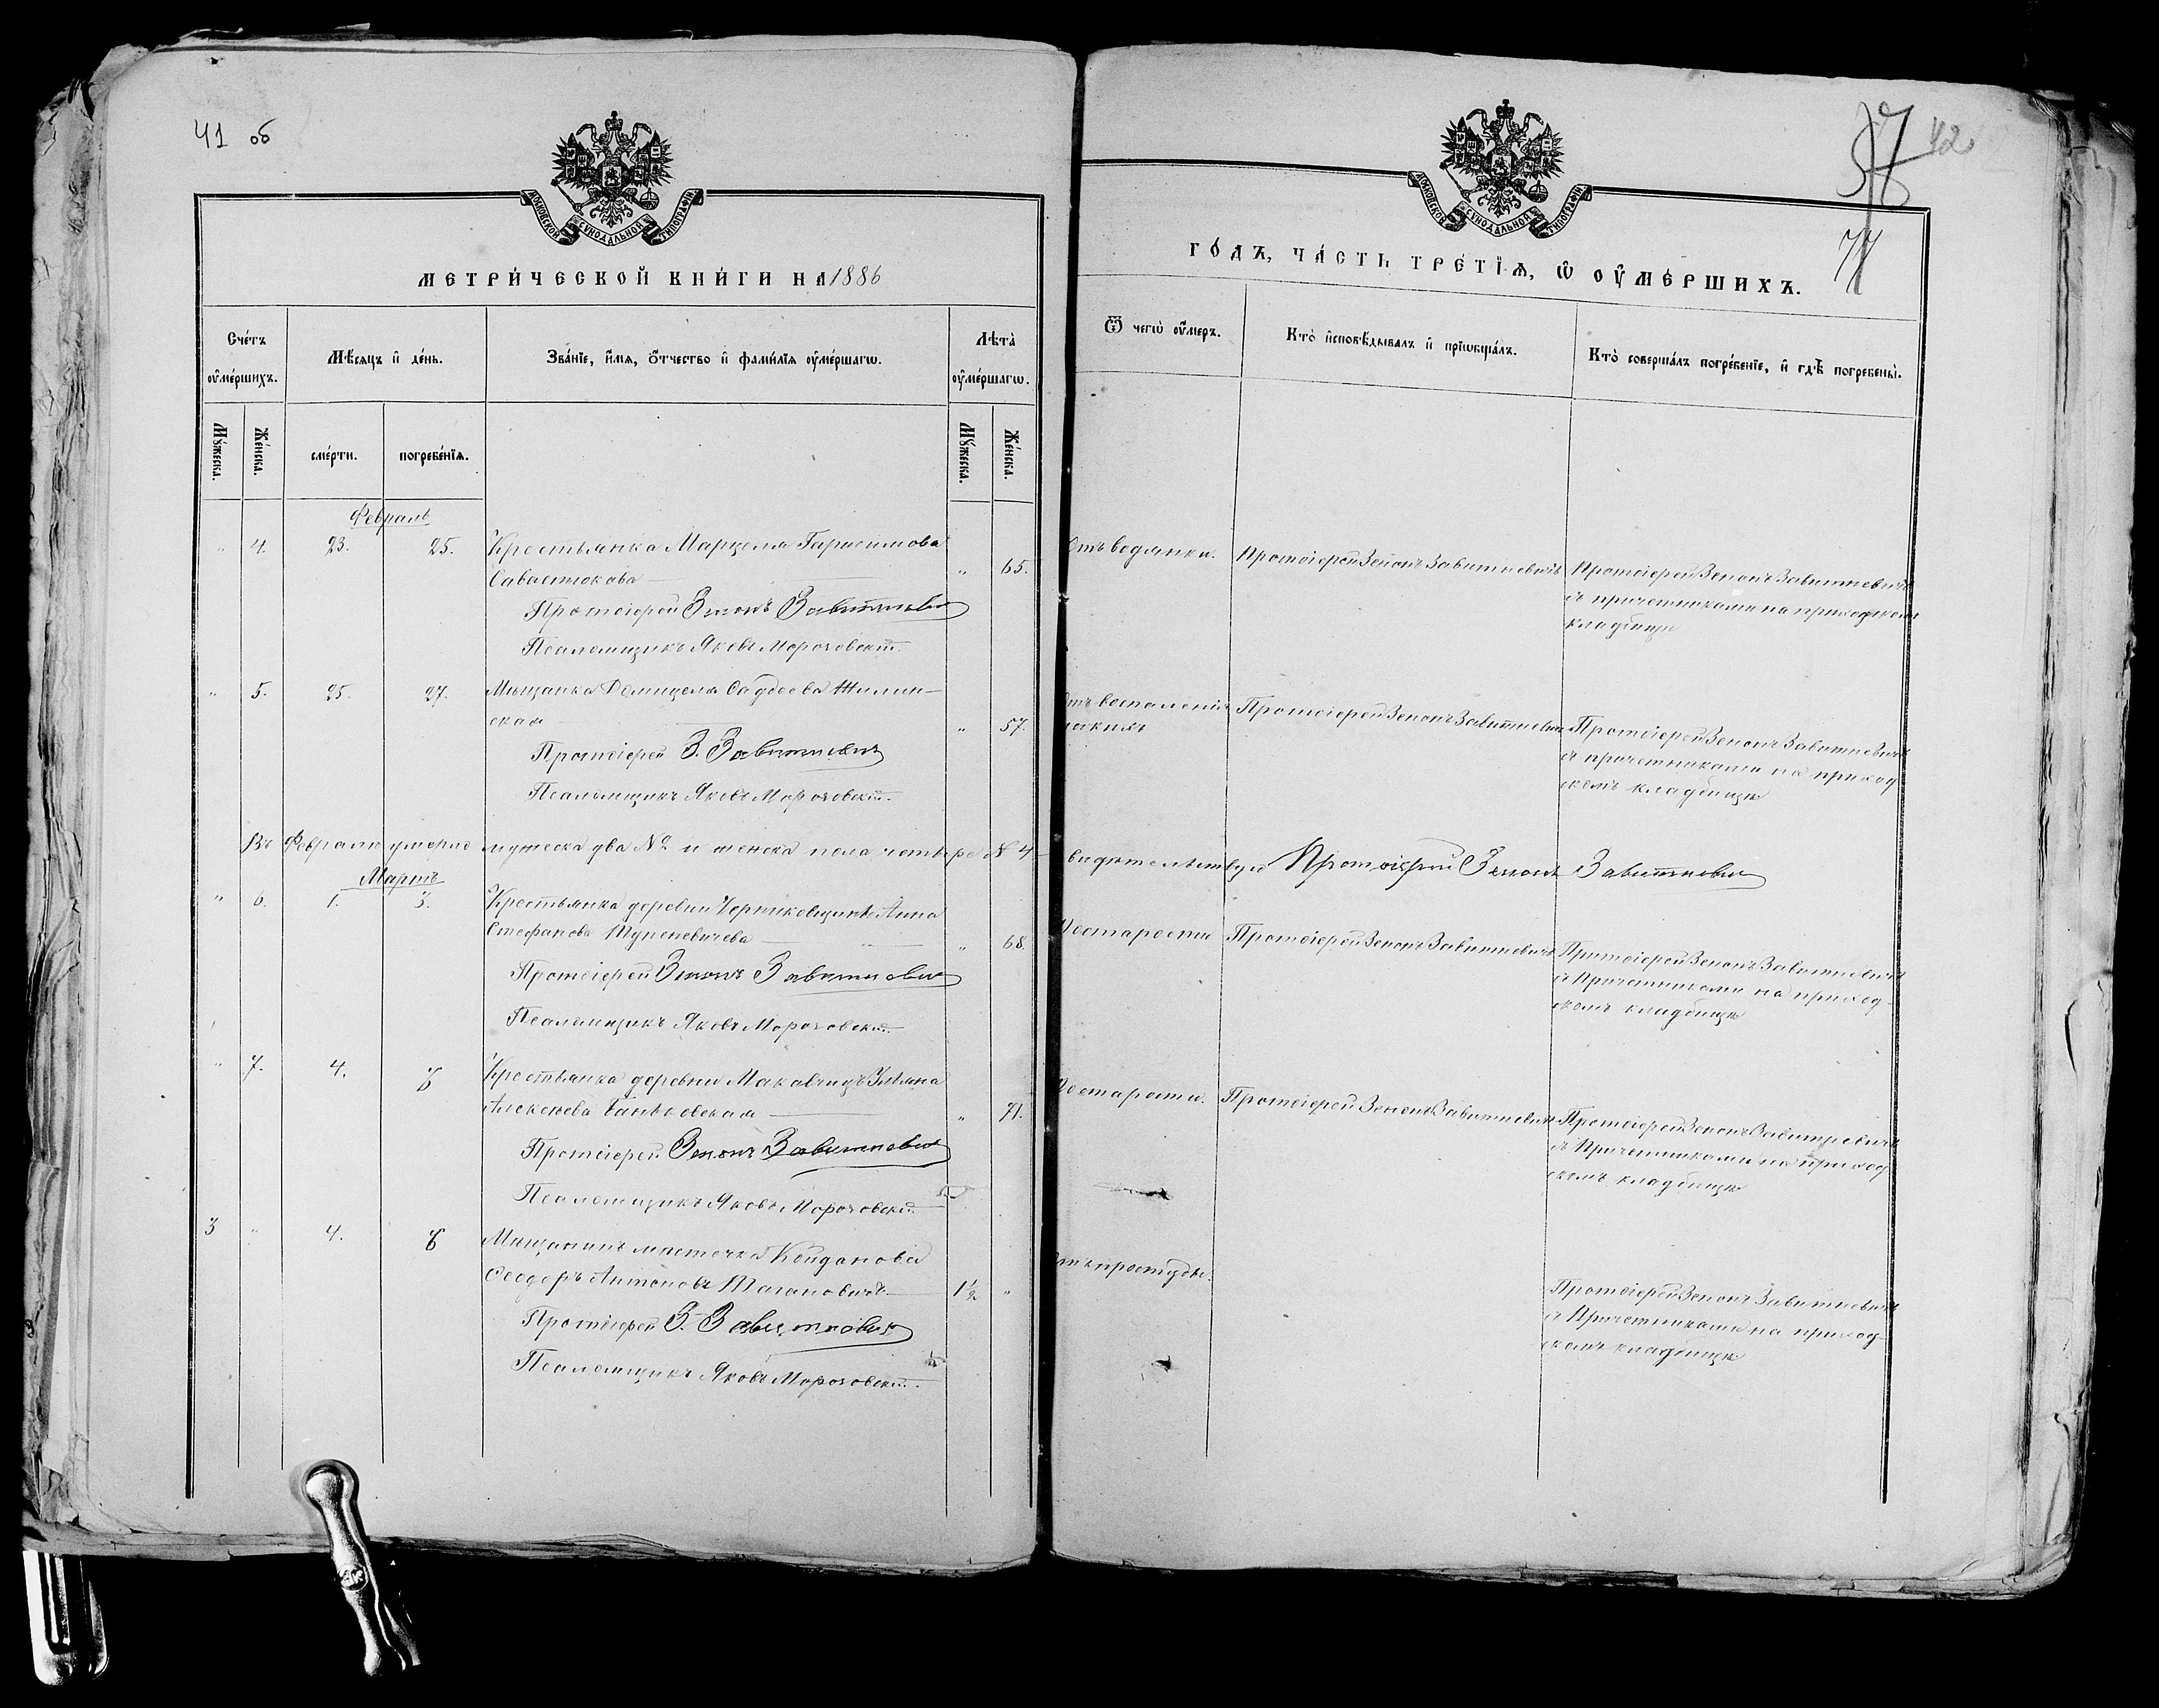 41 об
МОСКОВСКОЙ СѴНОДАЛЬНОЙ ТИПОГРАФІИ
МЕТРИ́ЧЕСКОЙ КНИ́ГИ НА 1886
Сче́тъ ᲂу҆ме́ршихъ.
Мѣ́сяцъ и҆ де́нь.
Зва́нїе, и҆́мя, ѻ҆́тчество и҆ фами́лїя ᲂу҆ме́ршагѡ.
Лѣта̀ ᲂу҆ме́ршагѡ.
Мꙋ́жеска.
Же́нска.
сме́рти.
погребе́нїя.
Мꙋ́жеска.
Же́нска.
Февраль
" 4. 23. 25. Крестьянка Марцеля Гарасимова
Савастюкова " 65.
Протоіерей Зенонъ Завитневичъ
Псаломщикъ Яковъ Морозовскій
" 5. 25. 27. Мѣщанка Домицеля Фадѣева Жилин-
ская " 57.
Протоіерей З. Завитневичъ
Псаломщикъ Яковъ Морозовскій.
Въ Февралѣ умерло мужеска два № 2 и женска пола четыре № 4
Мартъ
" 6. 1. 3. Крестьянка деревни Анна
Стефанова " 68.
Протоіерей Зенонъ Завитневичъ
Псаломщикъ Яковъ Морозовскій
" 7. 4. 6 Крестьянка деревни Макавчицъ Уліяна
Алексѣева " 71.
Протоіерей Зенонъ Завитневичъ
Псаломщикъ Яковъ Морозовскій
3 " 4. 6 Мѣщанинъ мѣстечка Койданова
Ѳеодоръ Антоновъ 1½ "
Протоіерей З. Завитневичъ
Псаломщикъ Яковъ Морозовскій.
42
77
МОСКОВСКОЙ СѴНОДАЛЬНОЙ ТИПОГРАФІИ
ГО́ДЪ, ЧА́СТЬ ТРЕ́ТЇѦ, Ѡ҆ ᲂУ҆МЕ́РШИХЪ.
Ѿ чегѡ̀ ᲂу҆́меръ.
Кто̀ и҆сповѣ́дывалъ и҆ прїѡбща́лъ.
Кто̀ соверша́лъ погребе́нїе, и҆ гдѣ̀ погребены̀.
Отъ водянки. Протоіерей Зенонъ Завитневичъ Протоіерей Зенонъ Завитневичъ
съ причетниками на приходскомъ
кладбищѣ
отъ воспаленія Протоіерей Зенонъ Завитневичъ Протоіерей Зенонъ Завитневичъ
съ причетниками на приход-
скомъ кладбищѣ
свидѣтельствую Протоіерей Зенонъ Завитневичъ
Отъ старости Протоіерей Зенонъ Завитневичъ Протоіерей Зенонъ Завитневичъ
съ Причетниками на приход-
скомъ кладбищѣ
Отъ старости. Протоіерей Зенонъ Завитневичъ Протоіерей Зенонъ Завитневичъ
съ Причетниками на приход-
скомъ кладбищѣ
отъ простуды. Протоіерей Зенонъ Завитневичъ
съ Причетниками на приход-
скомъ кладбищѣ